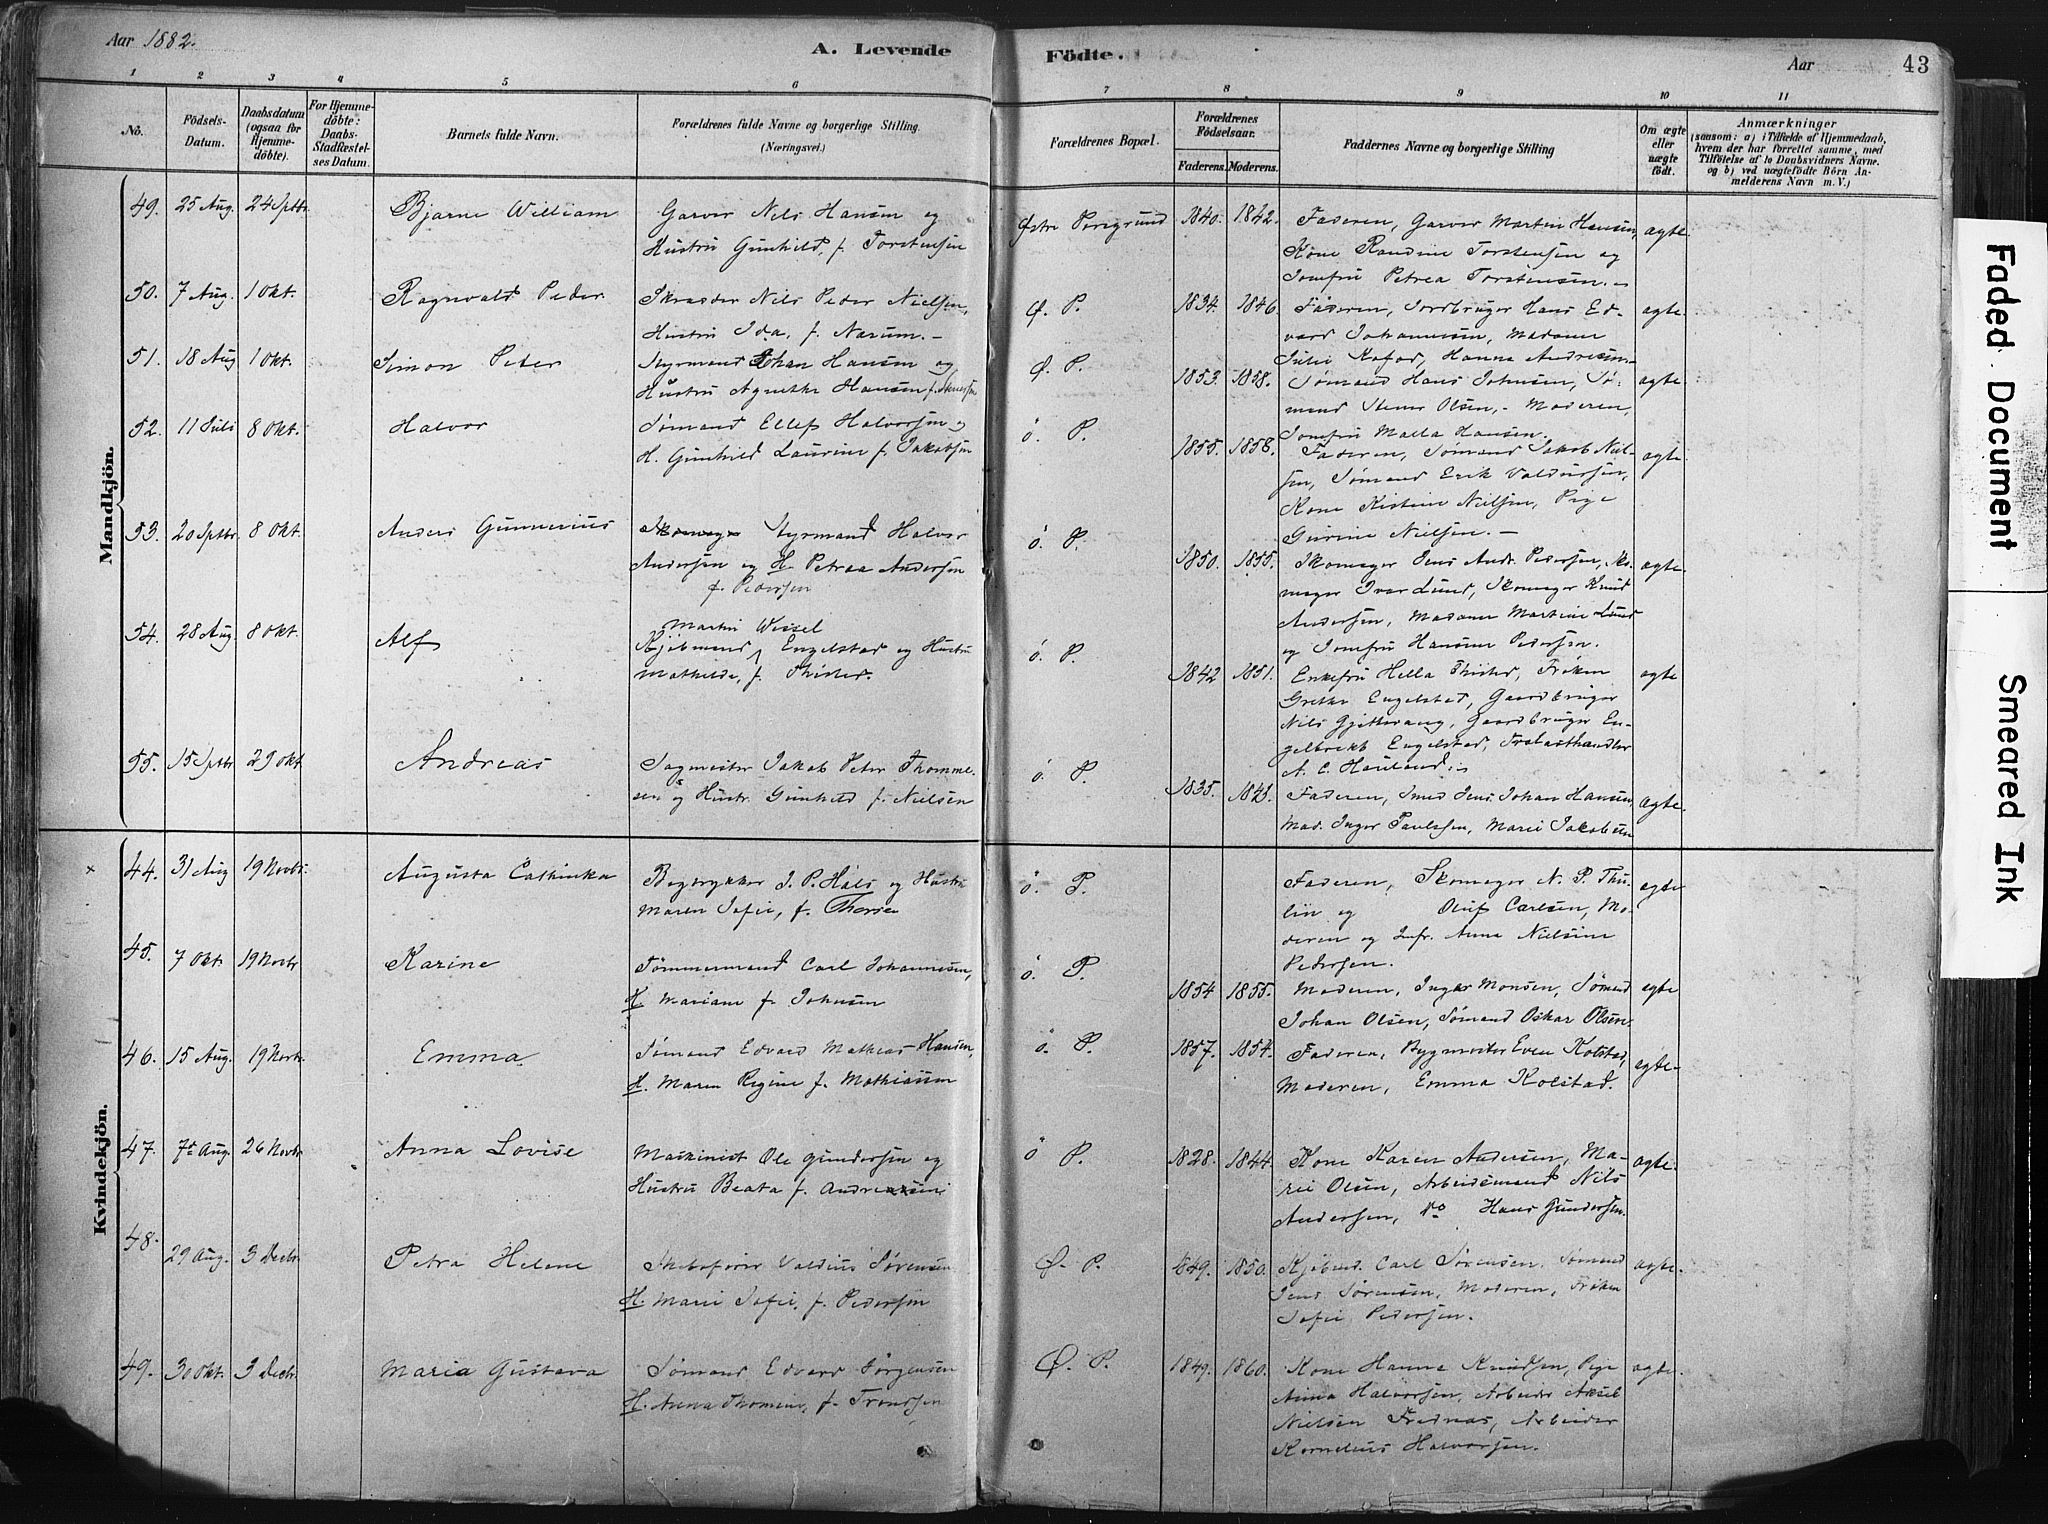 Aar 1882.
A. Levende
Födte.
Aar
43
1
2
3
4
5
6
7
8
9
10
11
No.
Födsels-
Datum.
Daabsdatum
(ogsaa for
Hjemme-
döbte).
For Hjemme-
döbte:
Daabs-
Stadfæstel-
ses Datum.
Barnets fulde Navn.
Forældrenes fulde Navne og borgerlige Stilling.
(Næringsvei.)
Forældrenes Bopæl.
Forældrenes
Födselsaar.
Faderens. Moderens.
Faddernes Navne og borgerlige Stilling
Om ægte
eller
uægte
födt.
Anmærkninger
(saasom: a) i Tilfælde af Hjemmedaab,
hvem der har forrettet samme, med
Tilföielse af to Daabsvidners Navne.
og b) ved uægtefödte Börn An-
melderens Navn m. V.)
Mandkjön.
49. 25 Aug. 24 Sptbr. Bjarne William
Garver Nils Hansen og
Hustru Gunhild, f. Torstensen
Østre Porsgrund 1840. 1842.
Faderen, Garver Martin Hansen,
Kone Randine Torstensen og
Jomfru Petrea Torstensen.
ægte.
50. 7 Aug. 1 Okt. Ragnvald Peder
Skræder Nils Peder Nielsen,
Hustru Ida, f. Narum.
Ø. P. 1834. 1846.
Faderen, Jordbruger Hans Ed-
vard Johannesen, Madame
Julie Kofod, Hanna Andresen.
ægte.
51. 18 Aug 1 Okt. Simon Peter
Styrmand Johan Hansen og
Hustru Agnethe Hansen f.
Ø. P. 1853. 1858.
Sømand Hans Johnsen, Sø-
mand Olsen, Moderen,
Jomfru Malla Hansen.
ægte.
52. 11 Juli 8 Okt. Halvor
Sømand Ellef Halvorsen og
H. Gunhild Laurine f. Jakobsen
ö. P. 1855. 1858.
Faderen, Sømand Jakob Niel-
sen, Sømand Erik
Kone Kistine Nielsen, Pige
Gurine Nielsen.
ægte.
53. 20 Sptbr. 8 Okt. Anders Gunnerius
Styrmand Halvor
Andersen og H. Petrea Andersen
f. Pedersen
ö. P. 1850. 1855.
Skomager Jens Andr. Pedersen, Sko-
mager Ivar Lund, Skomager Knud
Andersen, Madame Martine Lund
og Jomfru Hansine Pedersen.
ægte.
54. 28 Aug. 8 Okt. Alf
Martin Wessel
Kjøbmand Engelstad og Hustru
Mathilde, f. Thister.
ö. P. 1842 1851.
Enkefru Hella Thister, Frøken
Grethe Engelstad, Gaardbruger
Nils Gjetterang, Gaardbruger En-
gelbrekt Engelstad, Trælasthandler
A. C. Houland.
ægte
55. 15 Sptbr 29 Okt Andreas
Sagmester Jakob Peter Thomme-
sen og Hustr. Gunhild f. Nielsen
ö. P. 1835.
Faderen, Smed Jens Johan Hansen
Mad. Inger Paulsen, Marie Jakobsen
ægte.
Kvindekjön.
×
44. 31 Aug 19 Novbr. Augusta Cathinka
Bogtrykker J. P. Hals og Hustru
Maren Sofie, f. Thorsen
ö. P.
Faderen, Skomager N. P. Thu-
lin og Oluf Carlsen, Mo-
deren og Jnfr. Anna Nielsine
Pedersen.
ægte
45. 7 Okt. 19 Novbr Karine
Tömmermand Carl Johannesen,
H. Mariane f. Johnsen
ö. P. 1854 1855.
Moderen, Inger Monsen, Sømand
Johan Olsen, Sømand Oskar Olsen.
ægte
46. 15 Aug. 19 Novbr. Emma
Sømand Edvard Mathias Hansen,
H. Maren Regine f. Mathiasen
ö. P. 1857. 1854.
Faderen, Bygmester Even Kolstad,
Moderen, Emma Kolstad.
ægte
47. 7de Aug. 26 Novbr. Anna Lovise
Maskinist Ole Gundersen og
Hustru Beata f. Andreasen
ö P. 1828. 1844.
Kone Karen Andersen, Ma-
rie Olsen, Arbeidsmand Nils
Andersen, do Hans Gundersen.
ægte.
48. 29 Aug. 3 Decbr. Petra Helene
Skibsfører Valdius Sørensen
H. Marie Sofie, f. Pedersen
Ø. P. 1849. 1850.
Kjøbmd. Carl Sørensen, Sømand
Jens Sørensen, Moderen, Frøken
Sofie Pedersen.
ægte.
49. 30 Okt. 3 Decbr. Maria Gustava
Sømand Edvard Jörgensen
H. Anna Thomine, f. Trondsen
Ø. P. 1849. 1860.
Kone Hanna Knudsen, Pige
Anna Halvorsen, Arbeider Aksel
Nielsen Frednæs, Arbeider
Kornelius Halvorsen.
ægte.
Faded Document
Smeared Ink